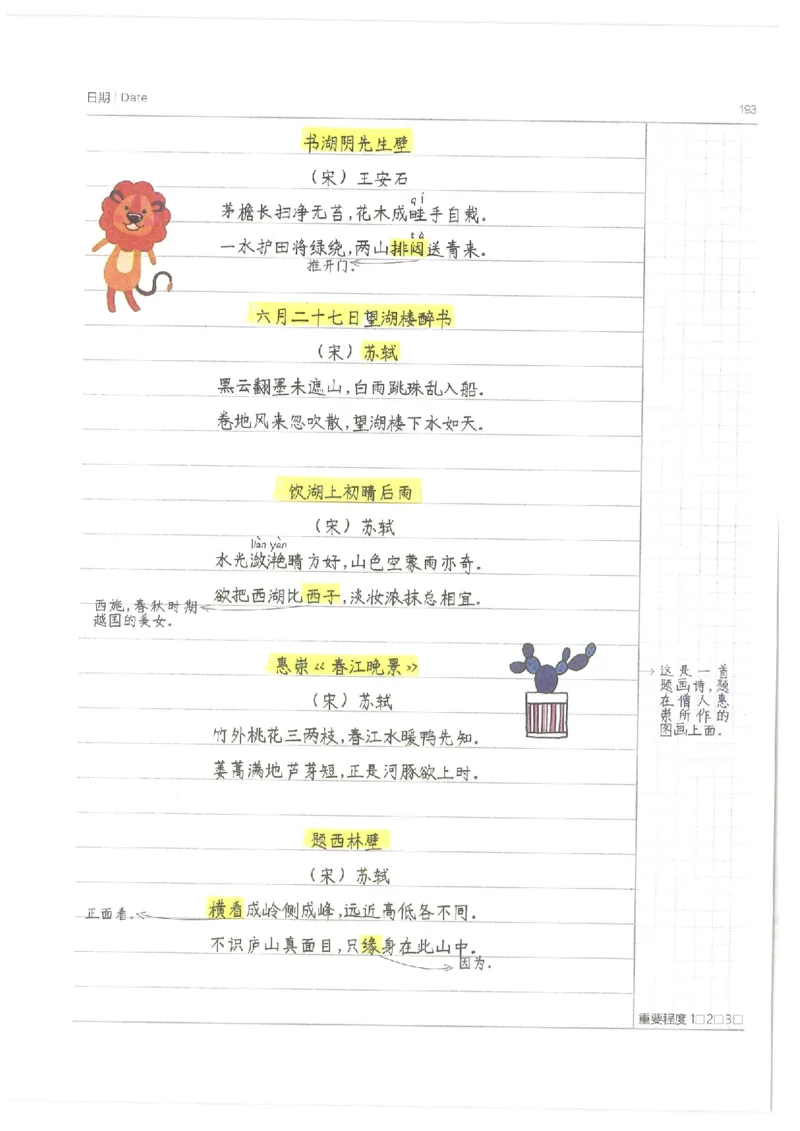 日期 | Date
193
书湖阴先生壁
（宋）王安石
qí
茅檐长扫净无苔，花木成畦手自栽。
tà
一水护田将绿绕，两山排闼送青来。
推开门。
六月二十七日望湖楼醉书
（宋）苏轼
黑云翻墨未遮山，白雨跳珠乱入船。
卷地风来忽吹散，望湖楼下水如天。
饮湖上初晴后雨
（宋）苏轼
liàn yàn
水光潋滟晴方好，山色空蒙雨亦奇。
欲把西湖比西子，淡妆浓抹总相宜。
西施，春秋时期
越国的美女。
惠崇《春江晚景》
（宋）苏轼
竹外桃花三两枝，春江水暖鸭先知。
蒌蒿满地芦芽短，正是河豚欲上时。
这是一首
题画诗，题
在僧人惠
崇所作的
图画上面。
题西林壁
（宋）苏轼
横看成岭侧成峰，远近高低各不同。
正面看。
不识庐山真面目，只缘身在此山中。
因为.
重要程度 1□2□3□